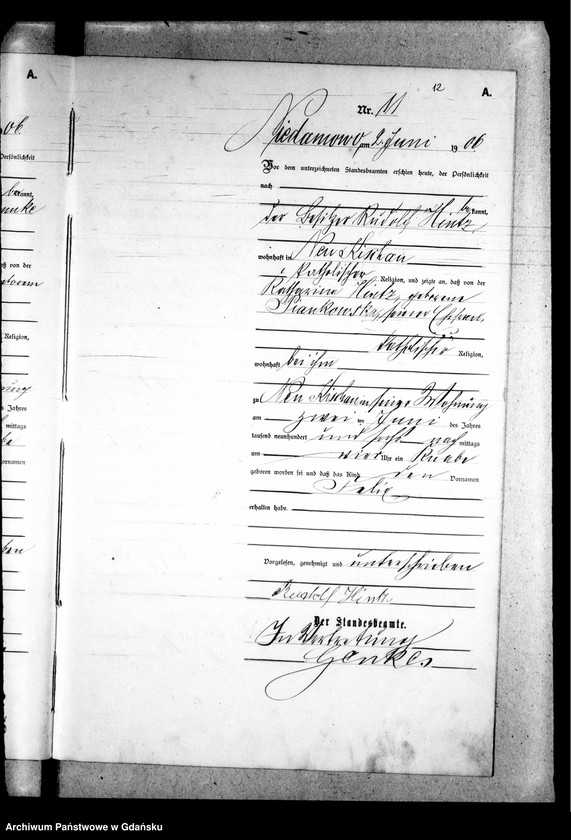 A.
12
A.
Nr. 11
Niedamowo, am 2. Juni 1906
Vor dem unterzeichneten Standesbeamten erschien heute, der Persönlichkeit
nach
bekannt,
der Besitzer Rudolf Hintz,
wohnhaft in Neu Kischau
katholischer Religion, und zeigte an, daß von der
Katharina Hintz, geborene
seiner Ehefrau,
katholischer Religion,
wohnhaft bei ihm
zu Neu Kischau in seiner Wohnung
am zwei ten Juni des Jahres
tausend neunhundert und sechs nach mittags
um vier Uhr ein Knabe
geboren worden sei und daß das Kind den Vornamen
Felix
erhalten habe.
Vorgelesen, genehmigt und unterschrieben
Rudolf Hintz
Der Standesbeamte.
In Vertretung
06
Persönlichkeit
kannt,
daß von der
Religion,
des Jahres
mittags
Vornamen
Archiwum Państwowe w Gdańsku